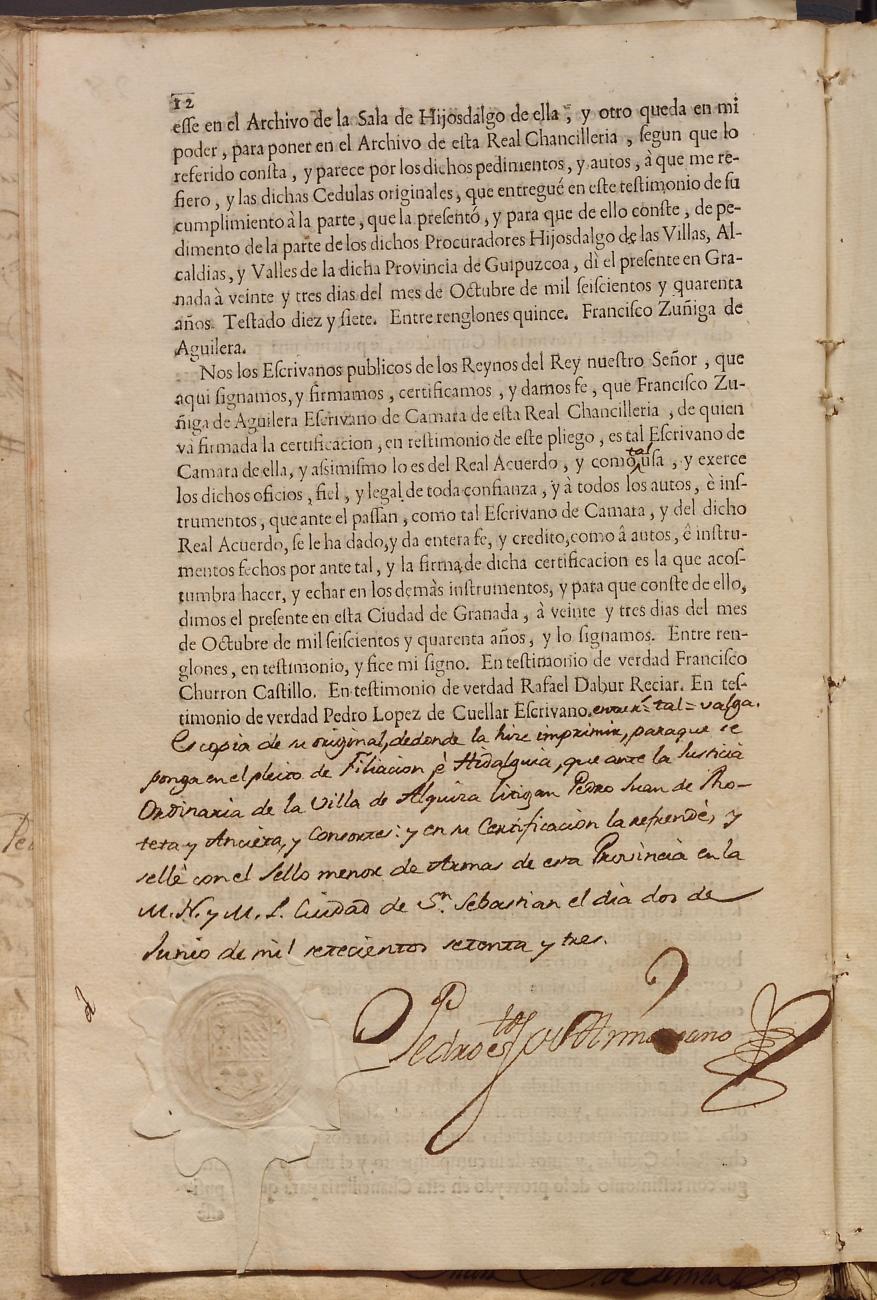 12
esse en el Archivo de la Sala de Hijosdalgo de ella, y otro queda en mi
poder, para poner en el Archivo de esta Real Chancilleria, segun que lo
referido consta, y parece por los dichos pedimentos, y autos, à que me re-
fiero, y las dichas Cedulas originales, que entregué en este testimonio de su
cumplimiento à la parte, que la presentó, y para que de ello conste, de pe-
dimento de la parte de los dichos Procuradores Hijosdalgo de las Villas, Al-
caldias, y Valles de la dicha Provincia de Guipuzcoa, dì el presente en Gra-
nada à veinte y tres dias del mes de Octubre de mil seiscientos y quarenta
años. Testado diez y siete. Entre renglones quince. Francisco Zuñiga de
Aguilera.
Nos los Escrivanos publicos de los Reynos del Rey nuestro Señor, que
aqui signamos, y firmamos, certificamos, y damos fe, que Francisco Zu-
ñiga de Aguilera Escrivano de Camara de esta Real Chancilleria, de quien
và firmada la certificacion, en testimonio de este pliego, es tal Escrivano de
Camara de ella, y assimismo lo es del Real Acuerdo, y como tal usa, y exerce
los dichos oficios, fiel, y legal de toda confianza, y à todos los autos, è ins-
trumentos, que ante el passan, como tal Escrivano de Camara, y del dicho
Real Acuerdo, se le ha dado, y da entera fe, y credito, como â autos, ê instru-
mentos fechos por ante tal, y la firma de dicha certificacion es la que acos-
tumbra hacer, y echar en los demàs instrumentos, y para que conste de ello,
dimos el presente en esta Ciudad de Granada, à veinte y tres dias del mes
de Octubre de mil seiscientos y quarenta años, y lo signamos. Entre ren-
glones, en testimonio, y fice mi signo. En testimonio de verdad Francisco
Churron Castillo. En testimonio de verdad Rafael Dabur Reciar. En tes-
timonio de verdad Pedro Lopez de Cuellar Escrivano. entre rs. = tal = valga.
Es copia de su original, de donde la hize imprimir, para que se
ponga en el pleito de Filiacion è Hidalguia, que ante la Justicia
Ordinaria de la Villa de Alquiza litigan Pedro Juan de Yho-
teta y Ancieta, y Consortes: y en su Certificacion la refrendé, y
sellè con el Sello menor de Armas de esta Provincia en la
M. N. y M. L. Ciudad de Sn. Sebastian el dia dos de
Junio de mil setecientos setenta y tres.
Pedro